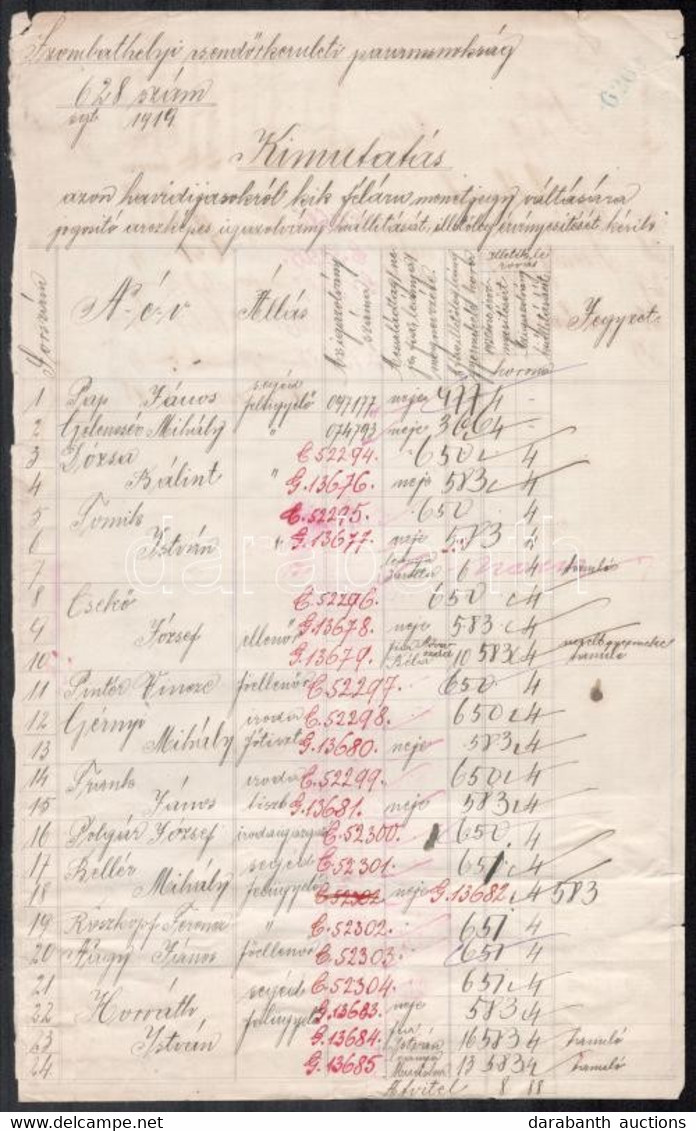 Szombathelyi csendőrkerületi parancsnokság
628 szám
1919
Kimutatás
azon havidíjasokról kik féláru menetjegy váltására
jogosító arczképes igazolvány kiállítását, illetőleg érvényesítését kérik
Sorszám Név Állás Az igazolvány száma korona Jegyzet
1 Pap János segéd felügyelő 047177 neje 477 4 -
2 Mihály " 074793 neje 366 4 -
3 Józsa C.52294. 650 4
4 Bálint " G.13676. neje 583 4
5 C.52295. 650 4
6 István " G.13677. neje 583 4
7 6 4 tanuló
8 Csekő C.52296. 650 4
9 József ellenőr G.13678. neje 583 4
10 G.13679. fia Béla 10 583 4 tanuló
11 Pintér Vincze főellenőr C.52297. 650 4
12 iroda C.52298. 650 4
13 Mihály főtiszt G.13680. neje 583 4
14 Frank iroda C.52299. 650 4
15 János tiszt G.13681. neje 583 4
16 Polgár József C.52300. 650 4
17 Kellér segéd C.52301. 651 4
18 Mihály felügyelő C.52302 neje G.13682 4 583
19 Roszkopf Ferenc " C.52302. 651 4
20 Nagy János főellenőr C.52303. 651 4
21 segéd C.52304. 651 4
22 Horváth felügyelő G.13683. neje 583 4
23 István G.13684. fia István 16 583 4 tanuló
24 G.13685 leánya 13 583 4 tanuló
Átvitel 8 88
darabanth
darabanth auctions